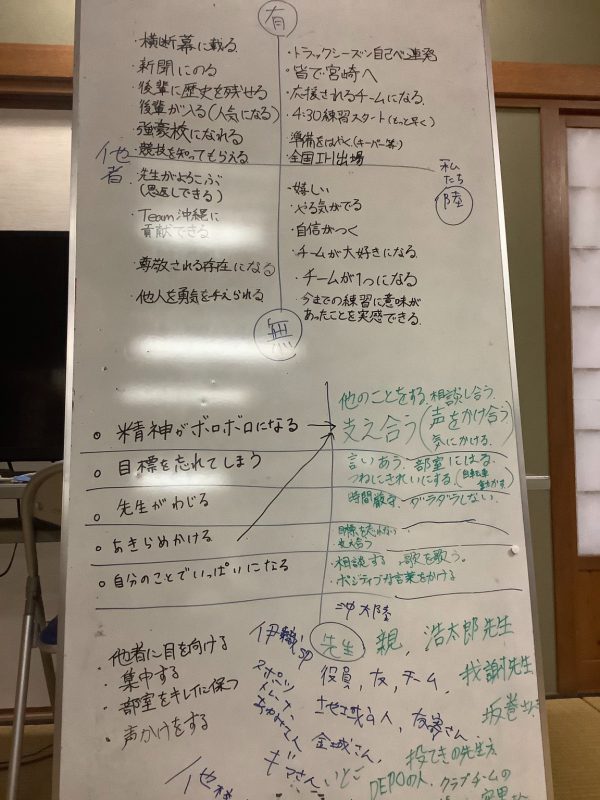 有
・横断幕に載る
・新聞にのる
・後輩に歴史を残せる
後輩が入る(人気になる)
・強豪校になれる
・競技を知ってもらえる
他者
・トラックシーズン自己ベ連発
・皆で宮崎へ
・応援されるチームになる
・4:30練習スタート(もっと早く)
準備をはやく(キーパー等)
・全国IH出場
私たち
陸
・先生がよろこぶ
(恩返しできる)
・Team沖縄に
貢献できる
・尊敬される存在になる
・他人を勇気を与えられる
・嬉しい
・やる気がでる
・自信がつく
・チームが大好きになる
・チームが1つになる
・今までの練習に意味が
あったことを実感できる
無
○精神がボロボロになる→
○目標を忘れてしまう
○先生がわじる
○あきらめかける
○自分のことでいっぱいになる
他のことをする.相談し合う.
支え合う(声をかけ合う)
気にかける.
言いあう.部室にはる.
つねにきれいにする(自転車
時間厳守.ダラダラしない.
目標を忘れない
支え合う
・相談する ・歌を歌う。
・ポジティブな言葉をかける
・他者に目を向ける
・集中する
・部室をキレイに保つ
・声かけをする
沖大陸
先生 親, 浩太郎先生
役員, 友, チーム, 我謝先生
スポーツ
地域の人, 有寄さん,
金城さん, 投てきの先生方
ギマさん いとこ
DEPOの人, クラブチームの